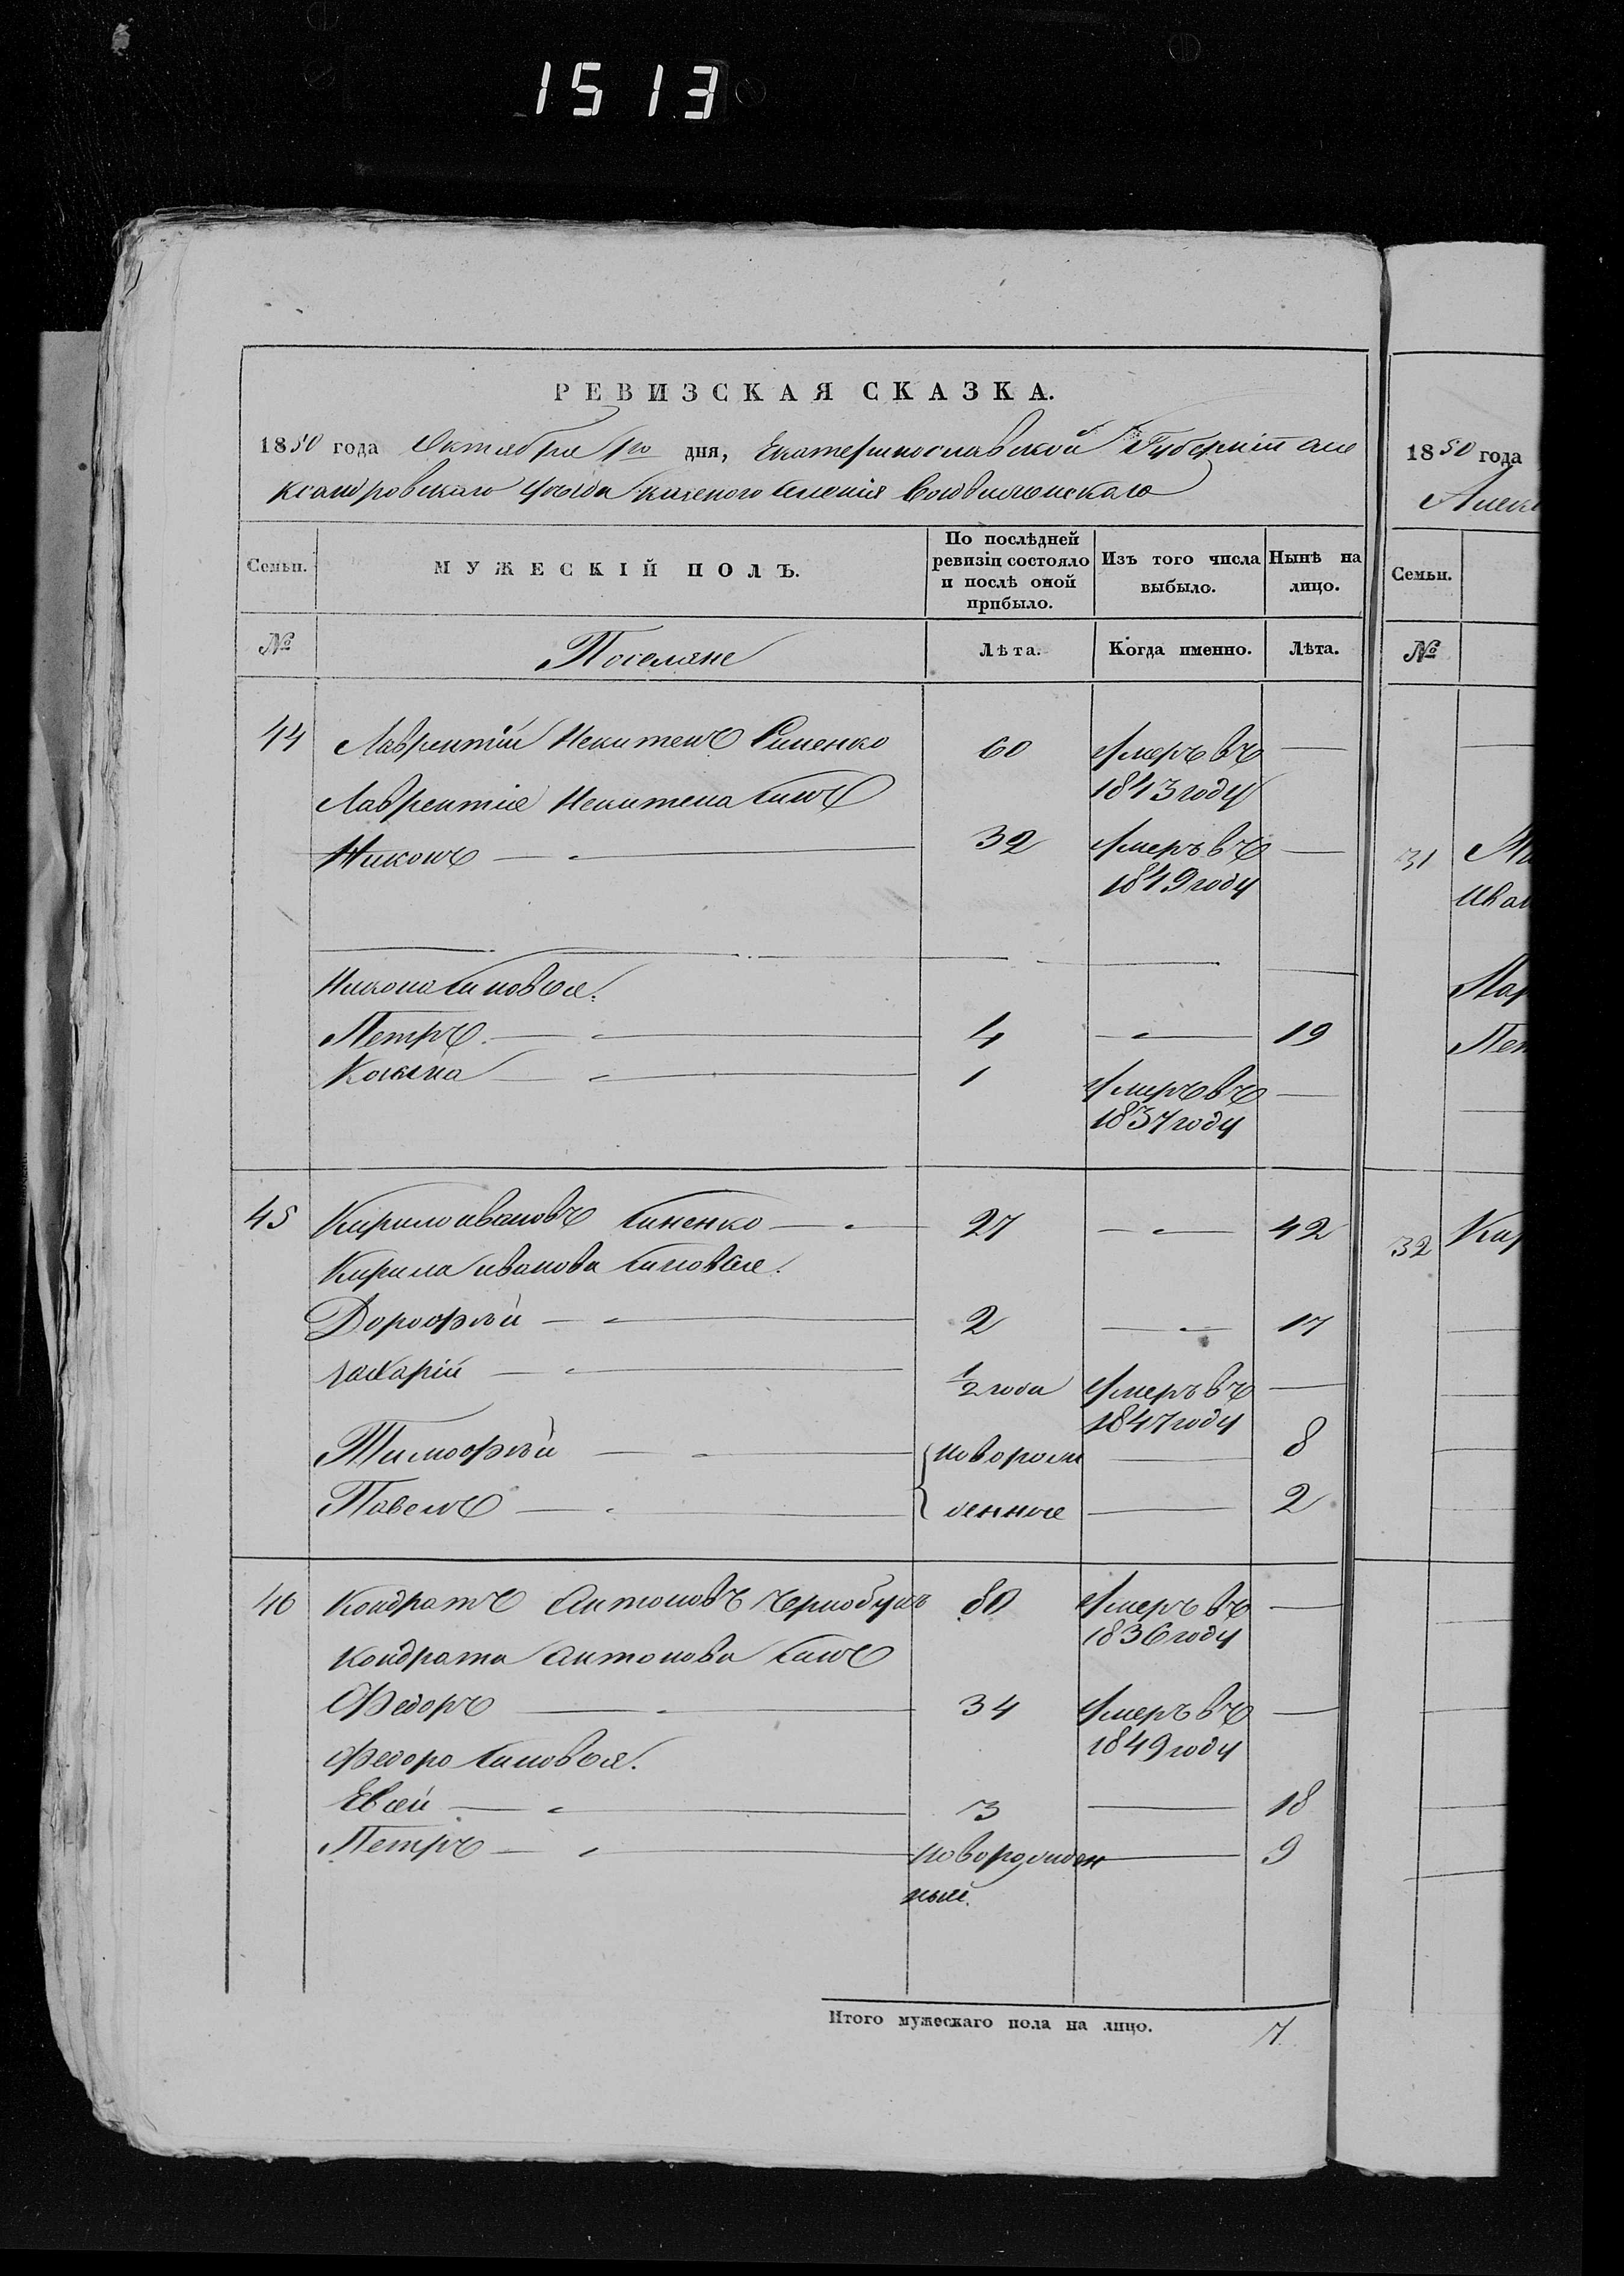 1513
РЕВИЗСКАЯ СКАЗКА.
1850 года Октября 1го дня, Екатеринославской Губерніи Але
ксандровскаго уѣзда казеного селенія
Семьи.
МУЖЕСКІЙ ПОЛЪ.
По послѣдней ревизіи состояло и послѣ оной прибыло.
Изъ того числа выбыло.
Нынѣ на лицо.
№
Поселяне
Лѣта.
Когда именно.
Лѣта.
44 Лаврентій Никитенъ Синенко 60 Умеръ въ —
1843 году
Лаврентія Никитена Синъ
Никонъ — 32 Умеръ въ —
1849 году
Никона Синовья.
Петръ — 4 — 19
Козьма — 1 Умеръ въ —
1837 году
45 Кирило Ивановъ Синенко — 27 — 42
Кирила Иванова Синовья.
Дорофѣй — 2 — 17
Захарій — 1/2 года Умеръ въ —
1847 году
Тимофѣй — новорож — 8
Павелъ — денные — 2
46 Кондратъ Антоновъ 80 Умеръ въ —
1836 году
Кондрата Антонова Синъ
Федоръ — 34 Умеръ въ —
1849 году
Федора Синовья.
Евсѣй — 3 — 18
Петръ — новорожден — 9
ный.
Итого мужескаго пола на лицо. 7.
1850 года
Алек
Семьи.
№
31
Ива
Пет
32 Кир